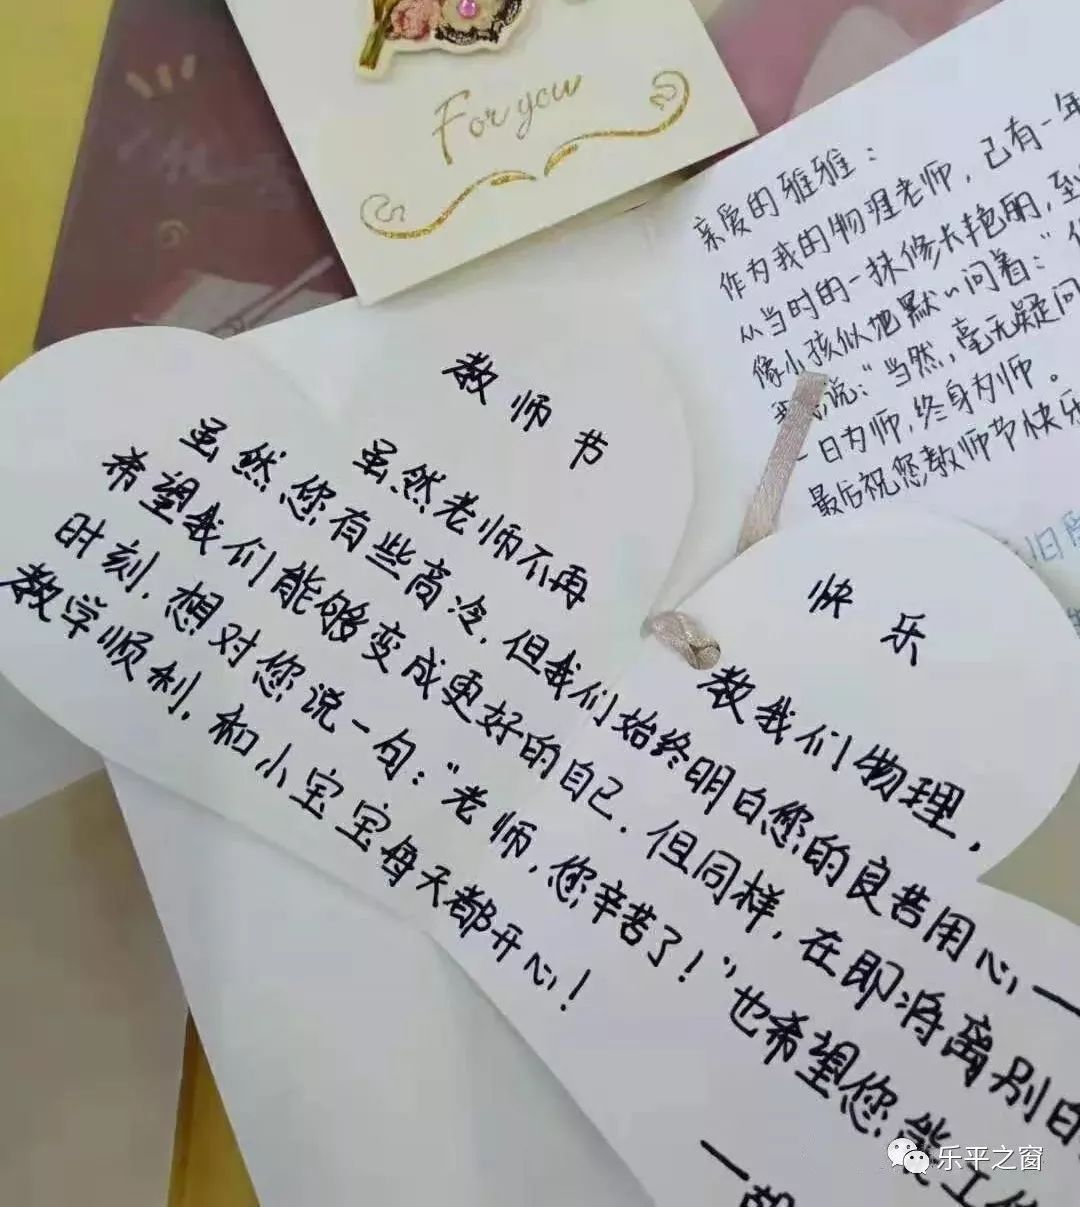 For you
亲爱的雅雅：
作为我的物理老师，已有一年
从当时的一抹修长艳丽，到
像小孩似地默〃问着：“
说：“当然，毫无疑问
一日为师，终身为师。
最后祝您教师节快乐
旧
教师节 快乐
虽然老师不再教我们物理，
虽然您有些高冷，但我们始终明白您的良苦用心—
希望我们能够变成更好的自己．但同样，在即将离别
时刻，想对您说一句：“老师，您辛苦了！”也希望您能工
教学顺利，和小宝宝每天都开心！
乐平之窗